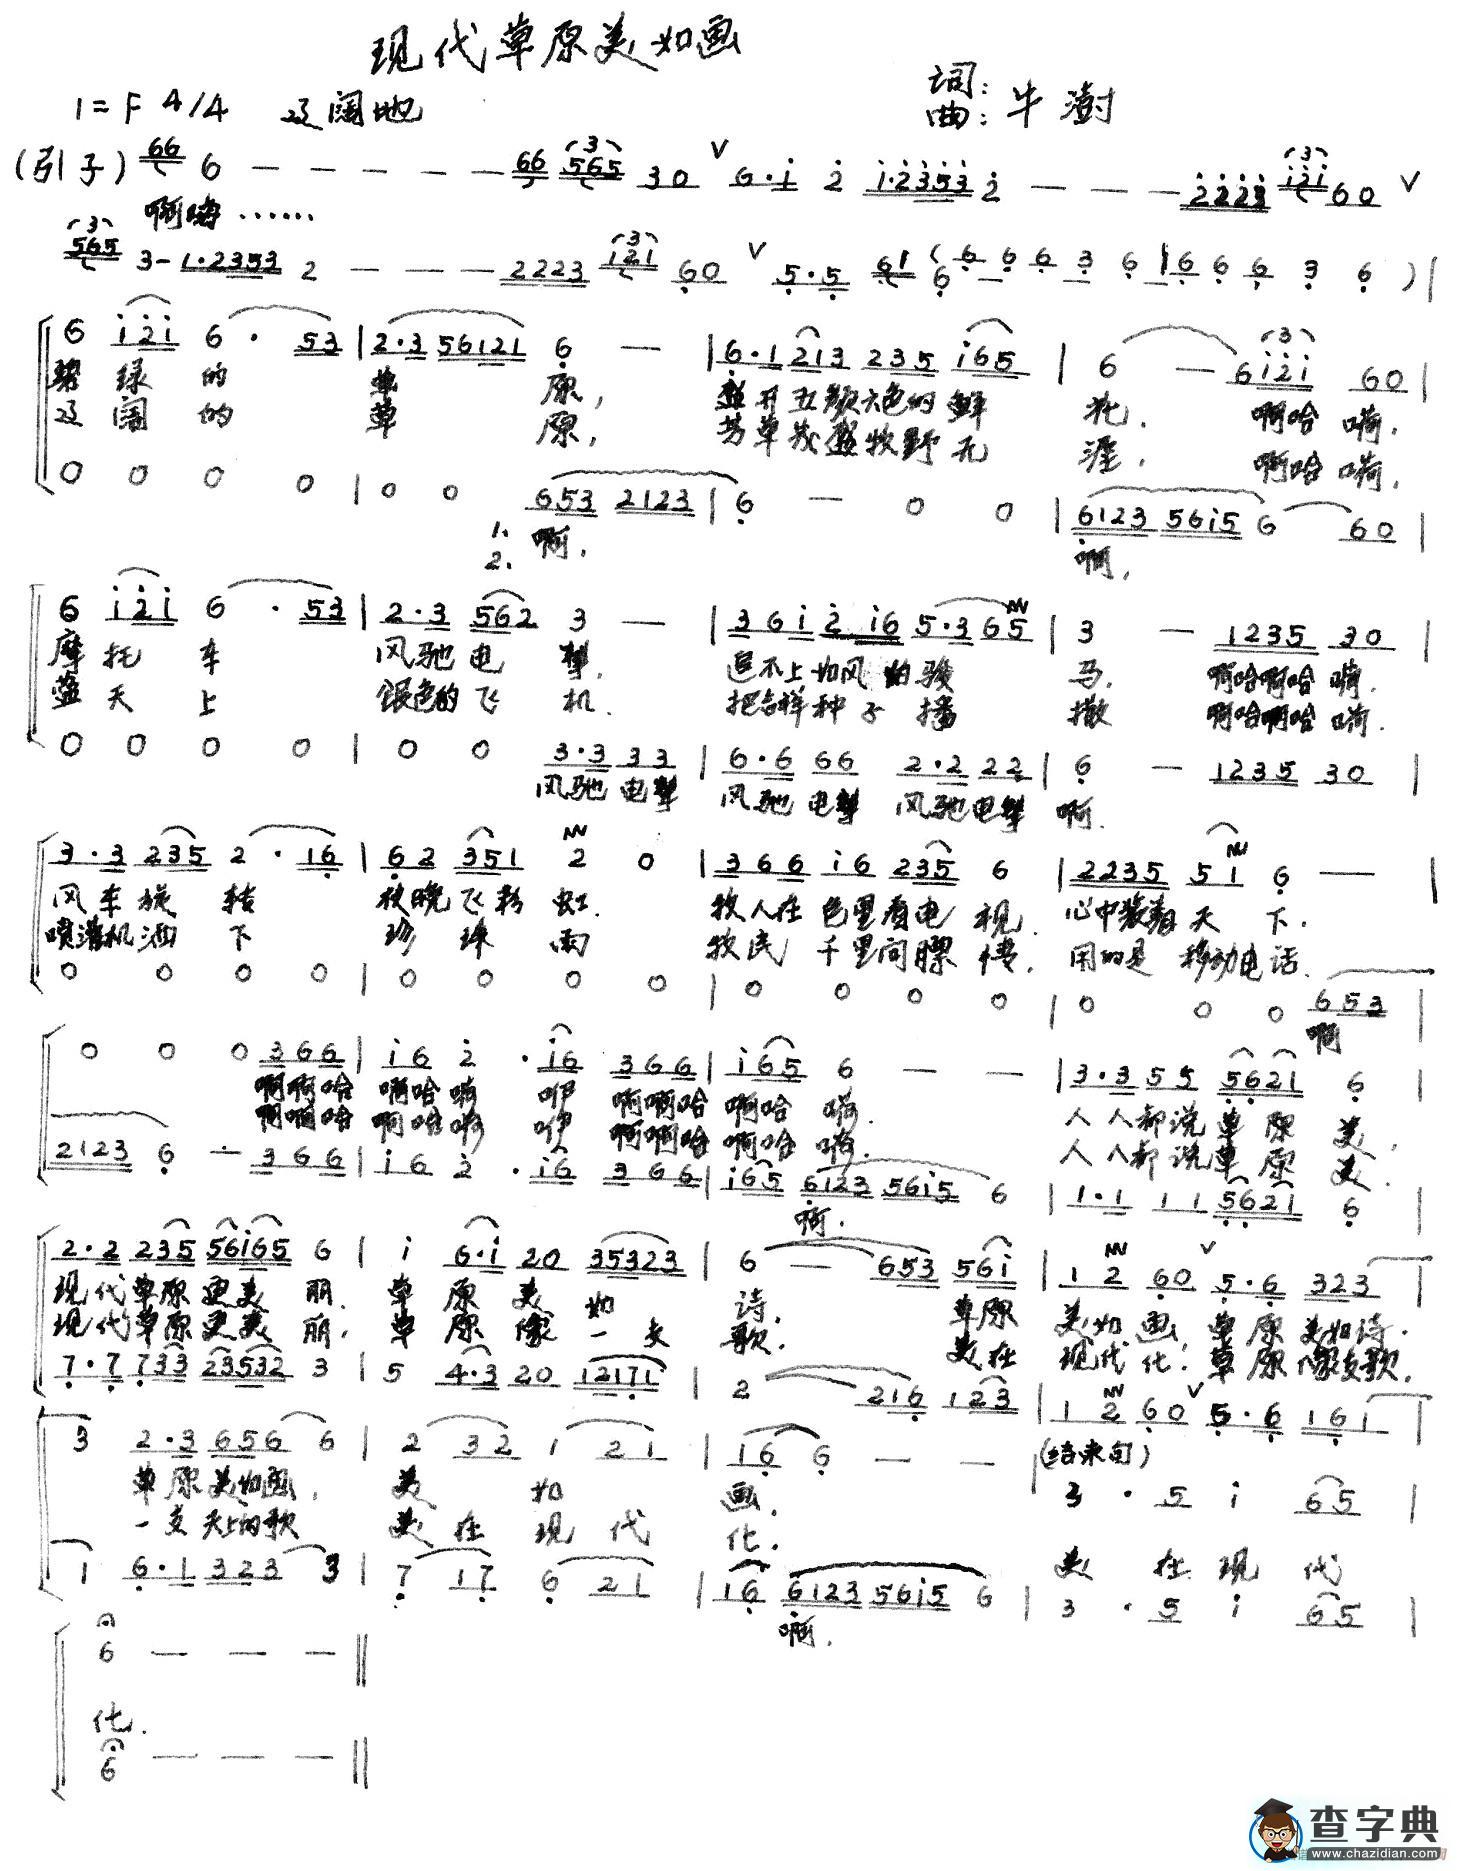 现代草原美如画
词:
曲: 牛澍
1=F 4/4 辽阔地
(引子) 66 6 — — — — — 66 565 30 V 6·i 2 i·2353 2 — — — 2223 i2i 60 V
啊嗬……
565 3- 1·2353 2 — — — 2223 i2i 60 V 5·5 61 (6 6 6 3 6 | 6 6 6 3 6 ) |
6 i2i 6 · 53 | 2·3 56121 6 — | 6·1 213 235 i65 | 6 — 6i2i 60 |
碧绿的 草 原, 盛开五颜六色的鲜 花. 啊哈 嗬.
辽阔的 草 原, 芳草茂盛牧野无 涯. 啊哈嗬.
0 0 0 0 | 0 0 653 2123 | 6 — 0 0 | 6123 56i5 6 60 |
1.
2. 啊. 啊.
6 i2i 6 · 53 | 2·3 562 3 — | 3 6 i 2 i6 5·3 65 | 3 — 1235 30 |
摩托车 风驰电掣. 追不上如风的骏 马. 啊哈啊哈嗬.
蓝天上 银色的飞机. 把吉祥种子播 撒 啊哈啊哈嗬.
0 0 0 0 | 0 0 3·3 33 | 6·6 66 2·2 22 | 6 — 1235 30 |
风驰电掣 风驰电掣 风驰电掣 啊.
3·3 235 2 · 16 | 62 351 2 0 | 366 i6 235 6 | 2235 51 6 — |
风车旋 转 夜晚飞彩虹. 牧人在 包里看电 视. 心中装着天 下.
喷灌机洒 下 珍 珠 雨 牧民 千里问膘情. 用的是 移动电话.
0 0 0 0 | 0 0 0 0 | 0 0 0 0 | 0 0 0 653 |
啊
0 0 0 366 | i6 2 · i6 366 | i65 6 — — | 3·3 55 5621 6 |
啊啊哈 啊哈嗬 咿 啊啊哈 啊哈 嗬. 人人都说草原 美.
啊啊哈 啊哈嗬 咿 啊啊哈 啊哈 嗬. 人人都说草原 美.
2123 6 — 366 | i6 2 · i6 366 | i65 6123 56i5 6 | 1·1 11 5621 6 |
啊.
2·2 235 56i65 6 | i 6·i 20 35323 | 6 — 653 56i | 12 60 V 5·6 323 |
现代草原更美 丽. 草 原 美 如 诗. 草原 美如画. 草原美如诗.
现代草原更美 丽. 草 原 像 一 支 歌. 美在 现代 化. 草原像支歌.
7·7 733 23532 3 | 5 4·3 20 12171 | 2 216 123 | 12 60 V 5·6 161 |
3 2·3 656 6 | 2 32 1 21 | 16 6 — — | (结束句) 3 · 5 i 65 |
草原美如画, 美 如 画.
一支天上的歌 美 在 现 代 化. 美 在 现 代
1 6·1 323 3 | 7 17 6 21 | 16 6123 56i5 6 | 3 · 5 i 65 |
啊.
6 — — — ‖
化.
6 — — — ‖
查字典
www.chazidian.com